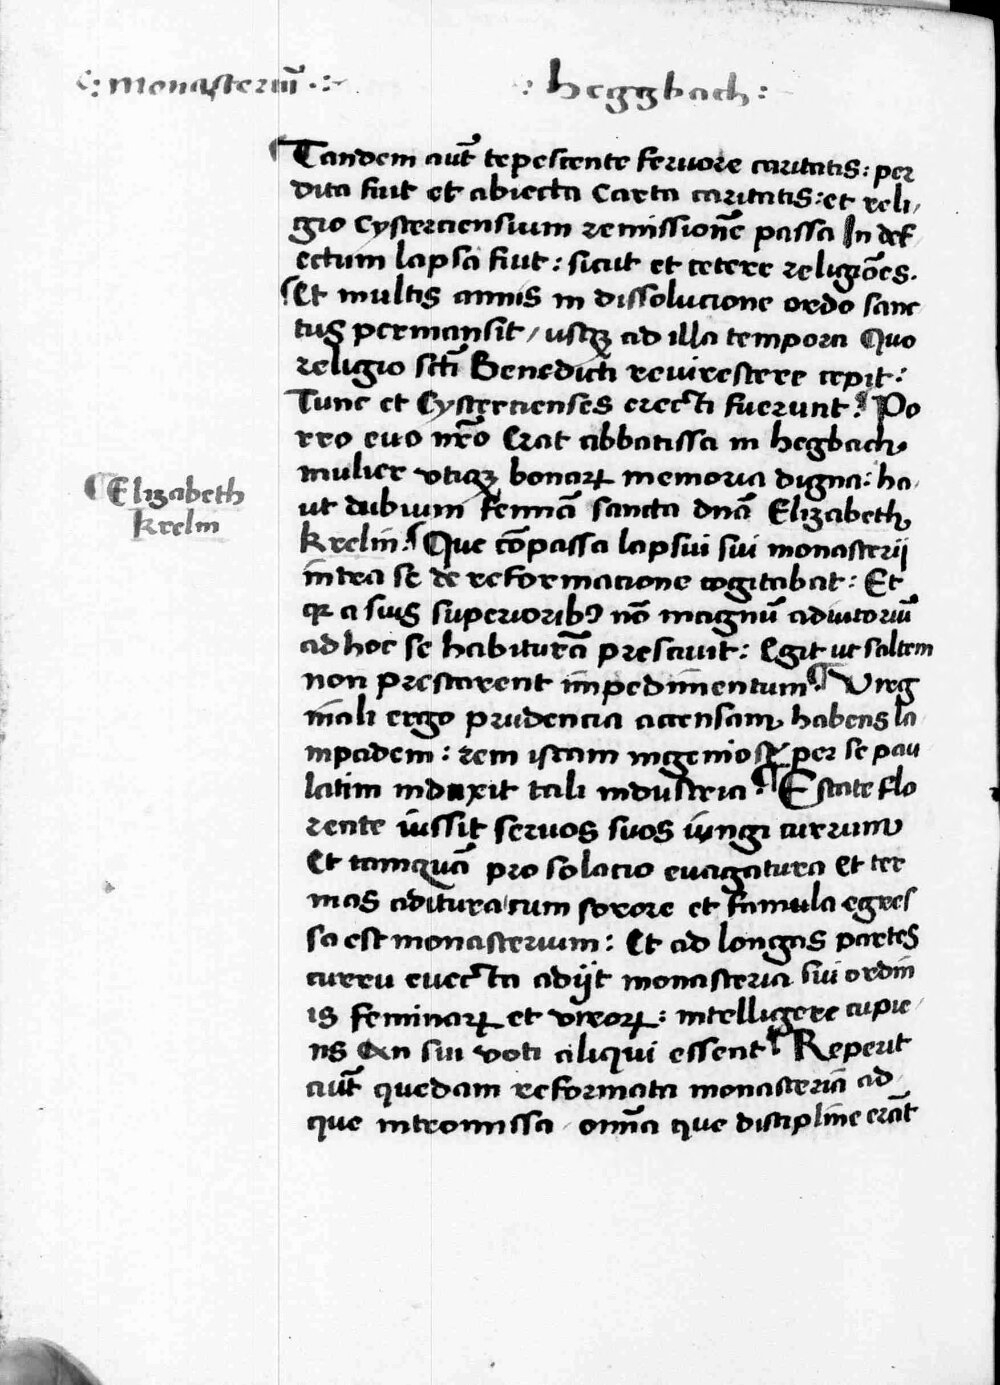 C: Monasteriū .:
: heggbach :
Tandem aut̄ tepescente feruore caritatis: per
dita fuit et abiecta Carta caritatis: et reli,
gio Cysterciensium remissionē passa In def
ectum lapsa fuit: sicut et cetere religiōes.
Et multis annis in dissolucione ordo sanc
tus permansit / usqꝫ ad illa tempora Quo
religio sctī Benedicti reuirescere cepit:
Tunc et Cystercienses erecti fuerunt: Po
rro euo nr̄o Erat abbatissa in hegbach
mulier vtiqꝫ bonaꝝ memoria digna: ha,
ut dubium femīa sancta dn̄a Elizabeth
Krelin: Que cōpassa lapsui sui monasterij
intra se de reformacione cogitabat: Et
qꝛ a suis superioribꝰ nō magnū adiutoriū
ad hoc se habiturā presciuit: Egit ut saltem
non prestarent impedimentum: Vireg
inali ergo prudencia accensam habens la,
mpadem: rem istam ingeniose per se pau
latim induxit tali industria: Estate flo
rente iussit seruos suos iungi currum
Et tamquā pro solacio euagatura et ter
mas aditura / cum sorore et famula egres
sa est monasterium: Et ad longas partes
curru euecta adijt monasteria sui ordin
is feminaꝝ et viroꝝ: intelligere cupie,
ns An sui voti aliqui essent: Reperit
aut̄ quedam reformata monasteria ad
que intromissa / omīa que discipline erāt
Elizabeth
Krelin